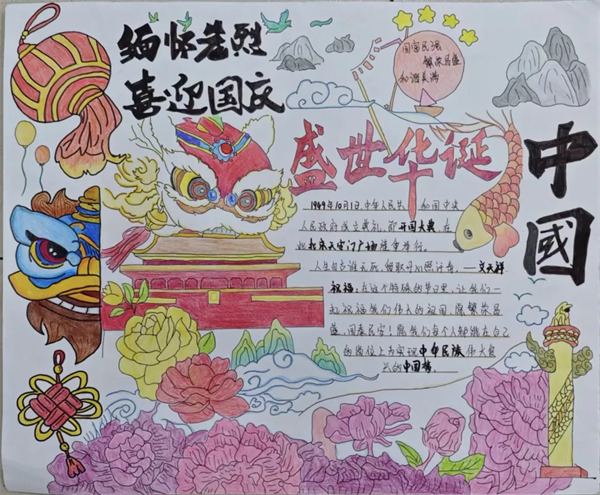 缅怀先烈
喜迎国庆
国富民强
繁荣昌盛
和谐美满
盛世华诞
中國
1949年10月1日,中华人民共和国中央
人民政府成立典礼,即开国大典,在
北京天安门广场隆重举行。
人生自古谁无死,留取丹心照汗青。——文天祥
祝福:在这个特殊的节日里,让我们一
起祝福我们伟大的祖国,愿繁荣昌
盛,国泰民安!愿我们每个人都能在自己
的岗位上为实现中华民族伟大复
兴的中国梦。